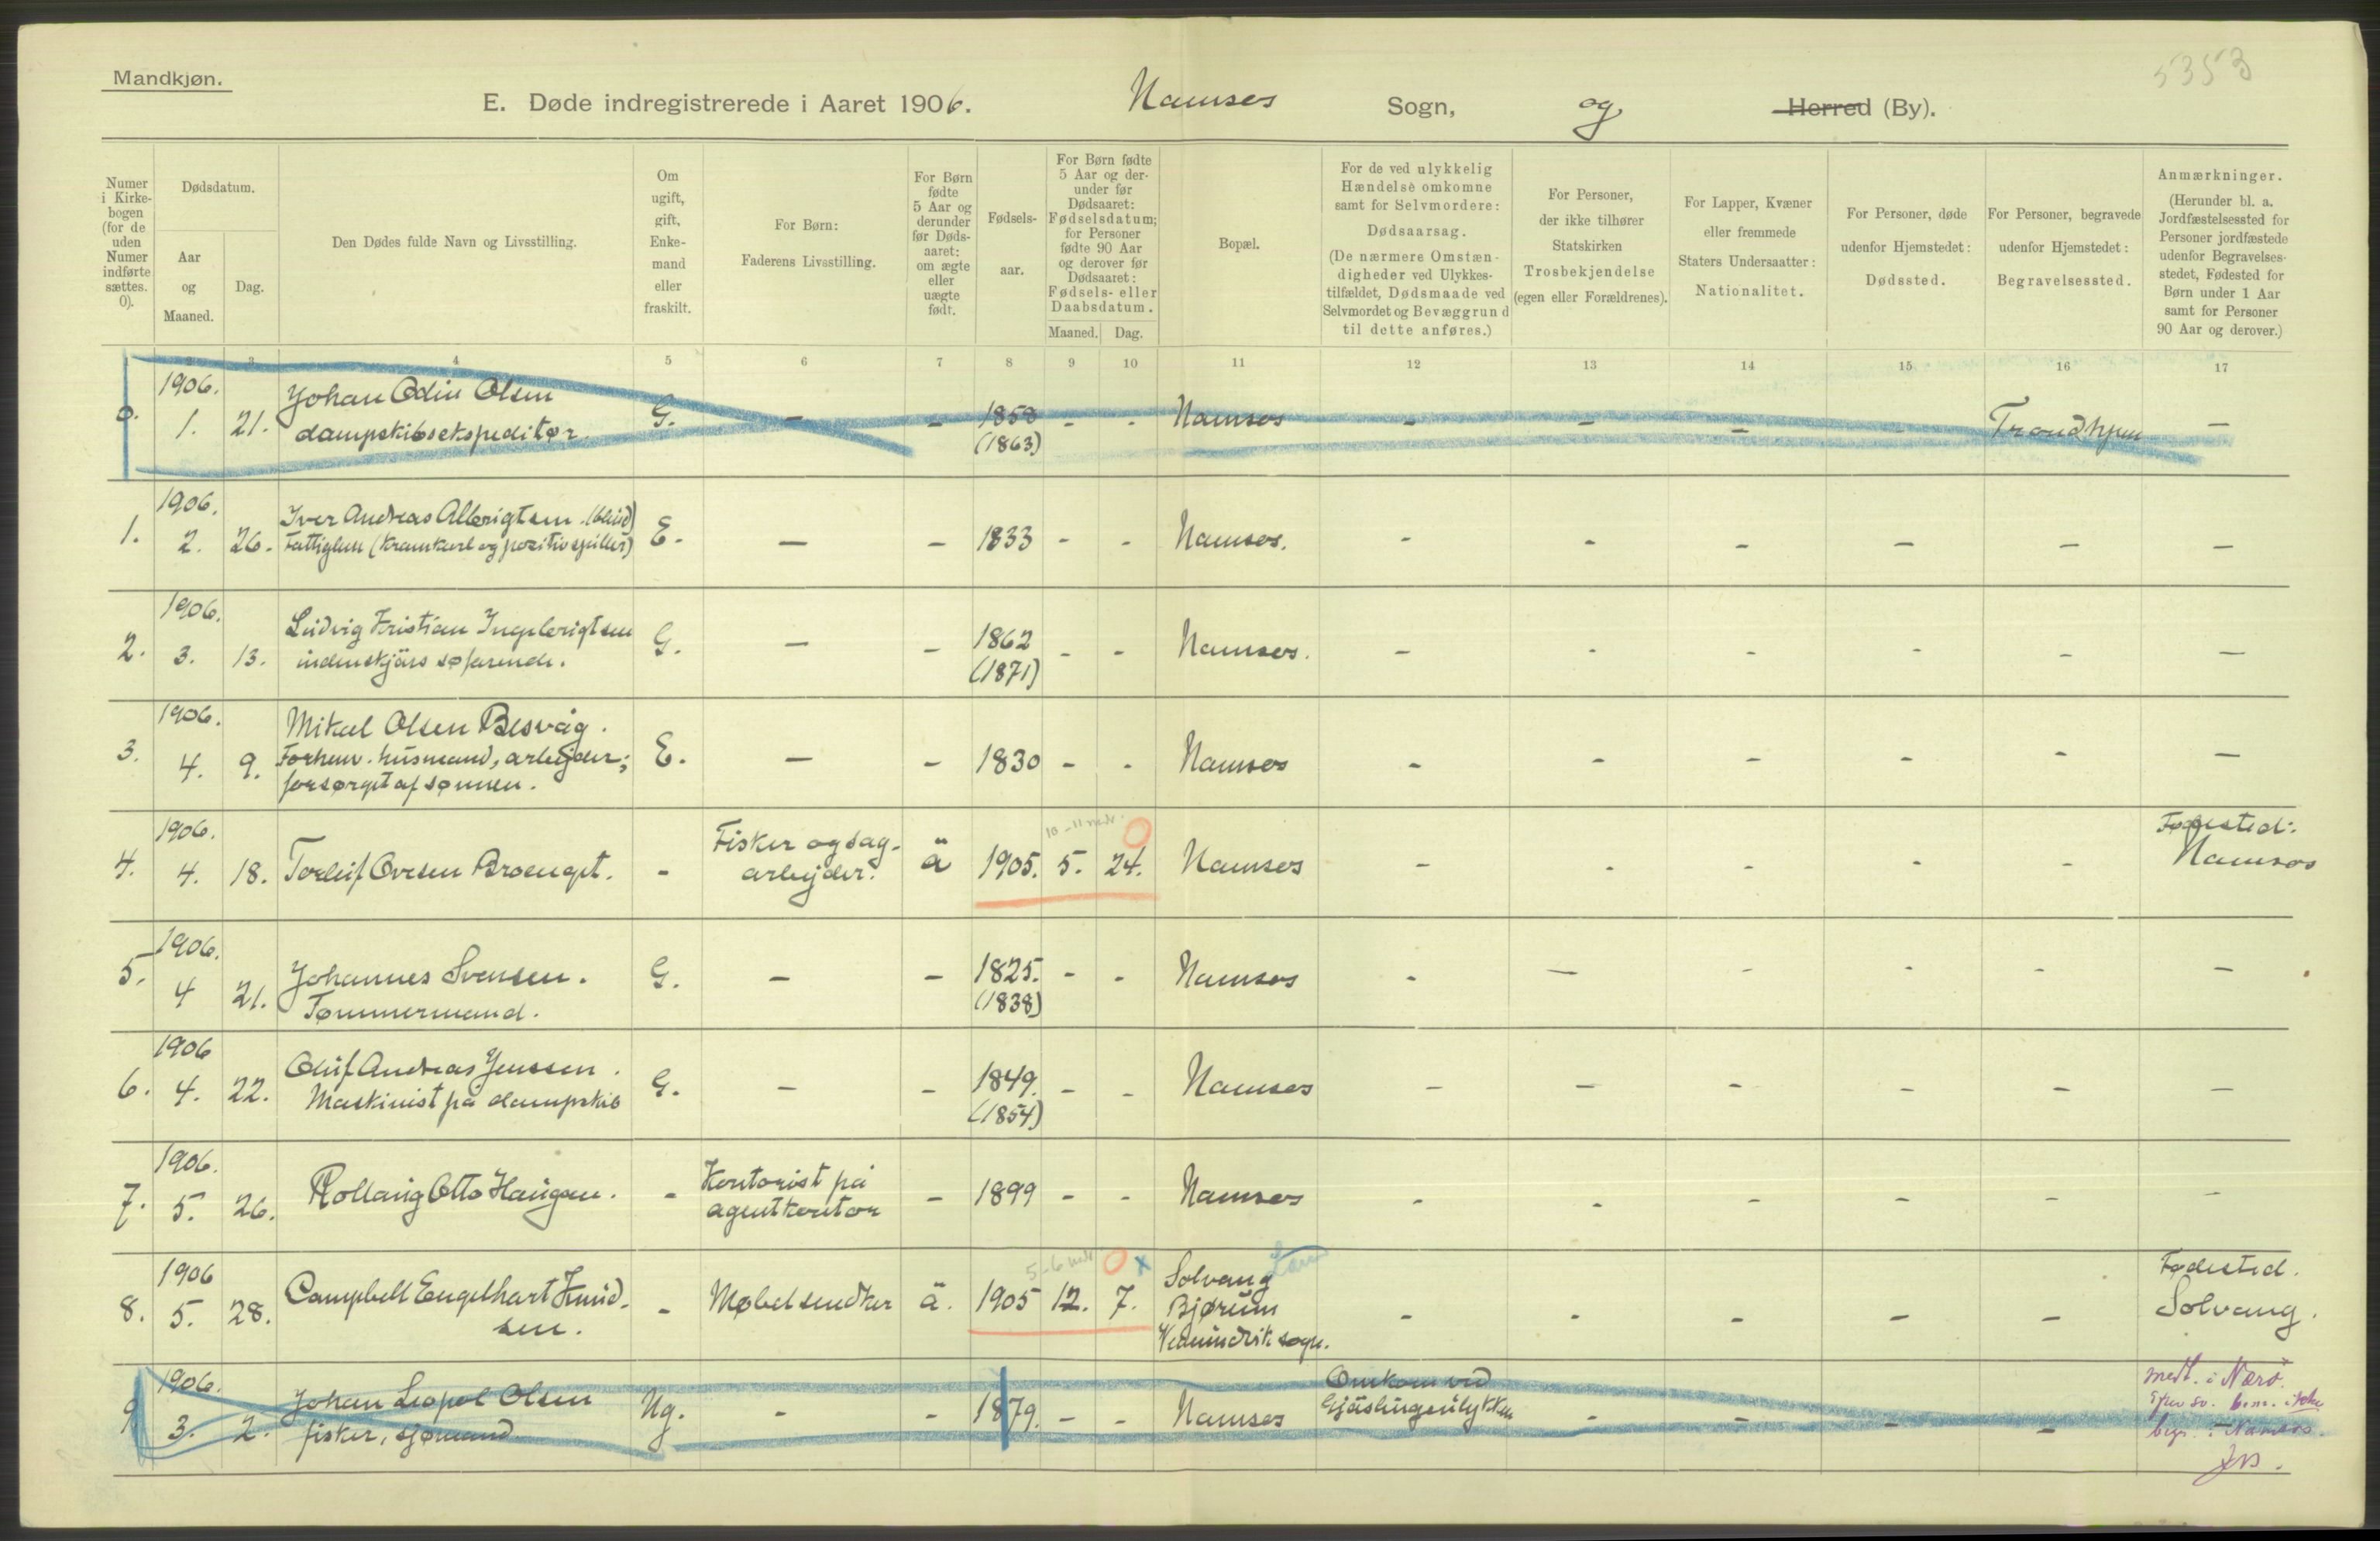 5353
Mandkjøn.
E. Døde indregistrerede i Aaret 1906. Namsos Sogn, og Herred (By).
Numer i Kirkebogen (for de uden Numer indførte sættes. 0).
Dødsdatum.
Aar og Maaned.
Dag.
Den Dødes fulde Navn og Livsstilling.
Om ugift, gift, Enkemand eller fraskilt.
For Børn: Faderens Livsstilling.
For Børn fødte 5 Aar og derunder før Dødsaaret: om ægte eller uægte født.
Fødselsaar.
For Børn fødte 5 Aar og derunder før Dødsaaret: Fødselsdatum; for Personer fødte 90 Aar og derover før Dødsaaret: Fødsels- eller Daabsdatum.
Maaned. Dag.
Bopæl.
For de ved ulykkelig Hændelse omkomne samt for Selvmordere: Dødsaarsag. (De nærmere Omstændigheder ved Ulykkestilfældet, Dødsmaade ved Selvmordet og Bevæggrund til dette anføres.)
For Personer, der ikke tilhører Statskirken Trosbekjendelse (egen eller Forældrenes).
For Lapper, Kvæner eller fremmede Staters Undersaatter: Nationalitet.
For Personer, døde udenfor Hjemstedet: Dødssted.
For Personer, begravede udenfor Hjemstedet: Begravelsessted.
Anmærkninger. (Herunder bl. a. Jordfæstelsessted for Personer jordfæstede udenfor Begravelsesstedet, Fødested for Børn under 1 Aar samt for Personer 90 Aar og derover.)
2 3 4 5 6 7 8 9 10 11 12 13 14 15 16 17
0. 1906. 1. 21. Johan Odin Olsen
dampskibsekspeditør. G. - - 1858 - - Namsos - - - - Trondhjem -
(1863)
1. 1906. 2. 26. Iver Andreas Albrigtsen. (blind)
Fattiglem (kramkarl og positivspiller) E. - - 1833 - - Namsos. - - - - - -
2. 1906. 3. 13. Ludvig Kristian Ingebrigtsen
indenskjärs søfarende. G. - - 1862 - - Namsos. - - - - - -
(1871)
3. 1906. 4. 9. Mikal Olsen Besvåg.
Forhenv. husmand, arbejder;
forsørget af sønnen. E. - - 1830 - - Namsos - - - - - -
4. 1906. 4. 18. Torleif Ovesen Broenget. - Fisker og sag-
arbejder. ä 1905. 5. 24. Namsos - - - - - Fødested:
Namsos
10-11 mdr.
5. 1906. 4 21. Johannes Svensen.
Tømmermand. G. - - 1825. - - Namsos - - - - - -
(1838)
6. 1906 4. 22. Oluf Andreas Jenssen.
Maskinist på dampskib G. - - 1849. - - Namsos - - - - - -
(1854)
7. 1906. 5. 26. Rollaug Otto Haugan. - Kontorist på
agentkontor - 1899 - - Namsos - - - - - -
8. 1906 5. 28. Campbell Engelhart Knud-
sen. - Møbelsnedker ä. 1905 12. 7. Solvang
Bjørum
Vemundvik sogn. - - - - - Fødested.
Solvang.
5-6 mdr x
9 1906. 3. 2. Johan Leopol Olsen
fisker, sjømand Ug. - - 1879. - - Namsos Omkom ved
Gjäslingenulykken - - - - medt. i Nærö
begr. i Namsos.